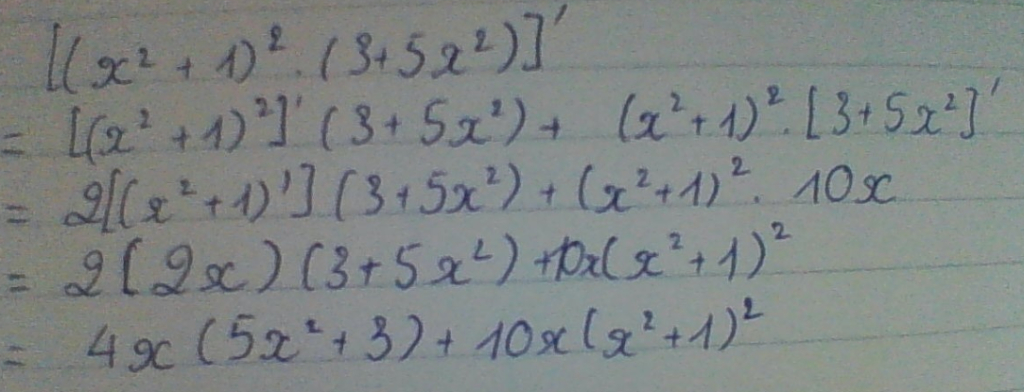 [(x² + 1)² . (3+5x²)]'
= [(x² + 1)²]' (3 + 5x²) + (x²+1)² . [3+5x²]'
= 2[(x²+1)'] (3+5x²) + (x²+1)² . 10x
= 2(2x)(3+5x²) +10x(x²+1)²
= 4x (5x²+3) + 10x(x²+1)²